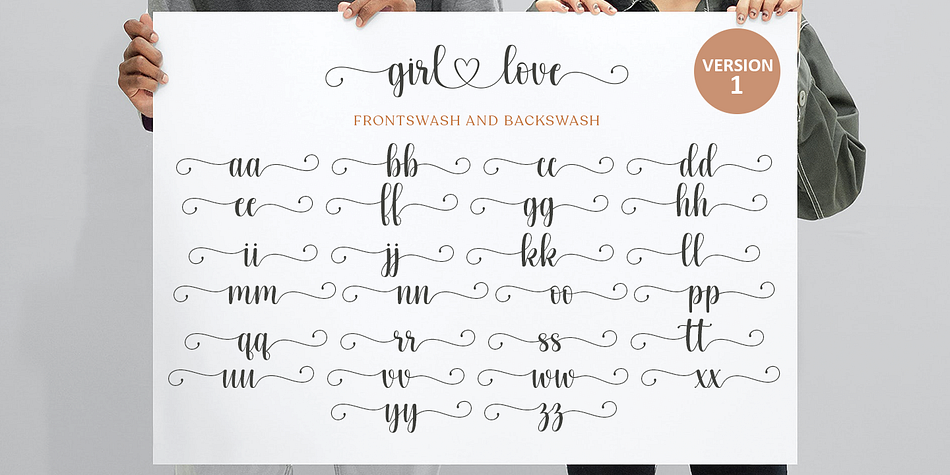 girl love
VERSION
1
FRONTSWASH AND BACKSWASH
aa bb cc dd
ee ff gg hh
ii jj kk ll
mm nn oo pp
qq rr ss tt
uu vv ww xx
yy zz